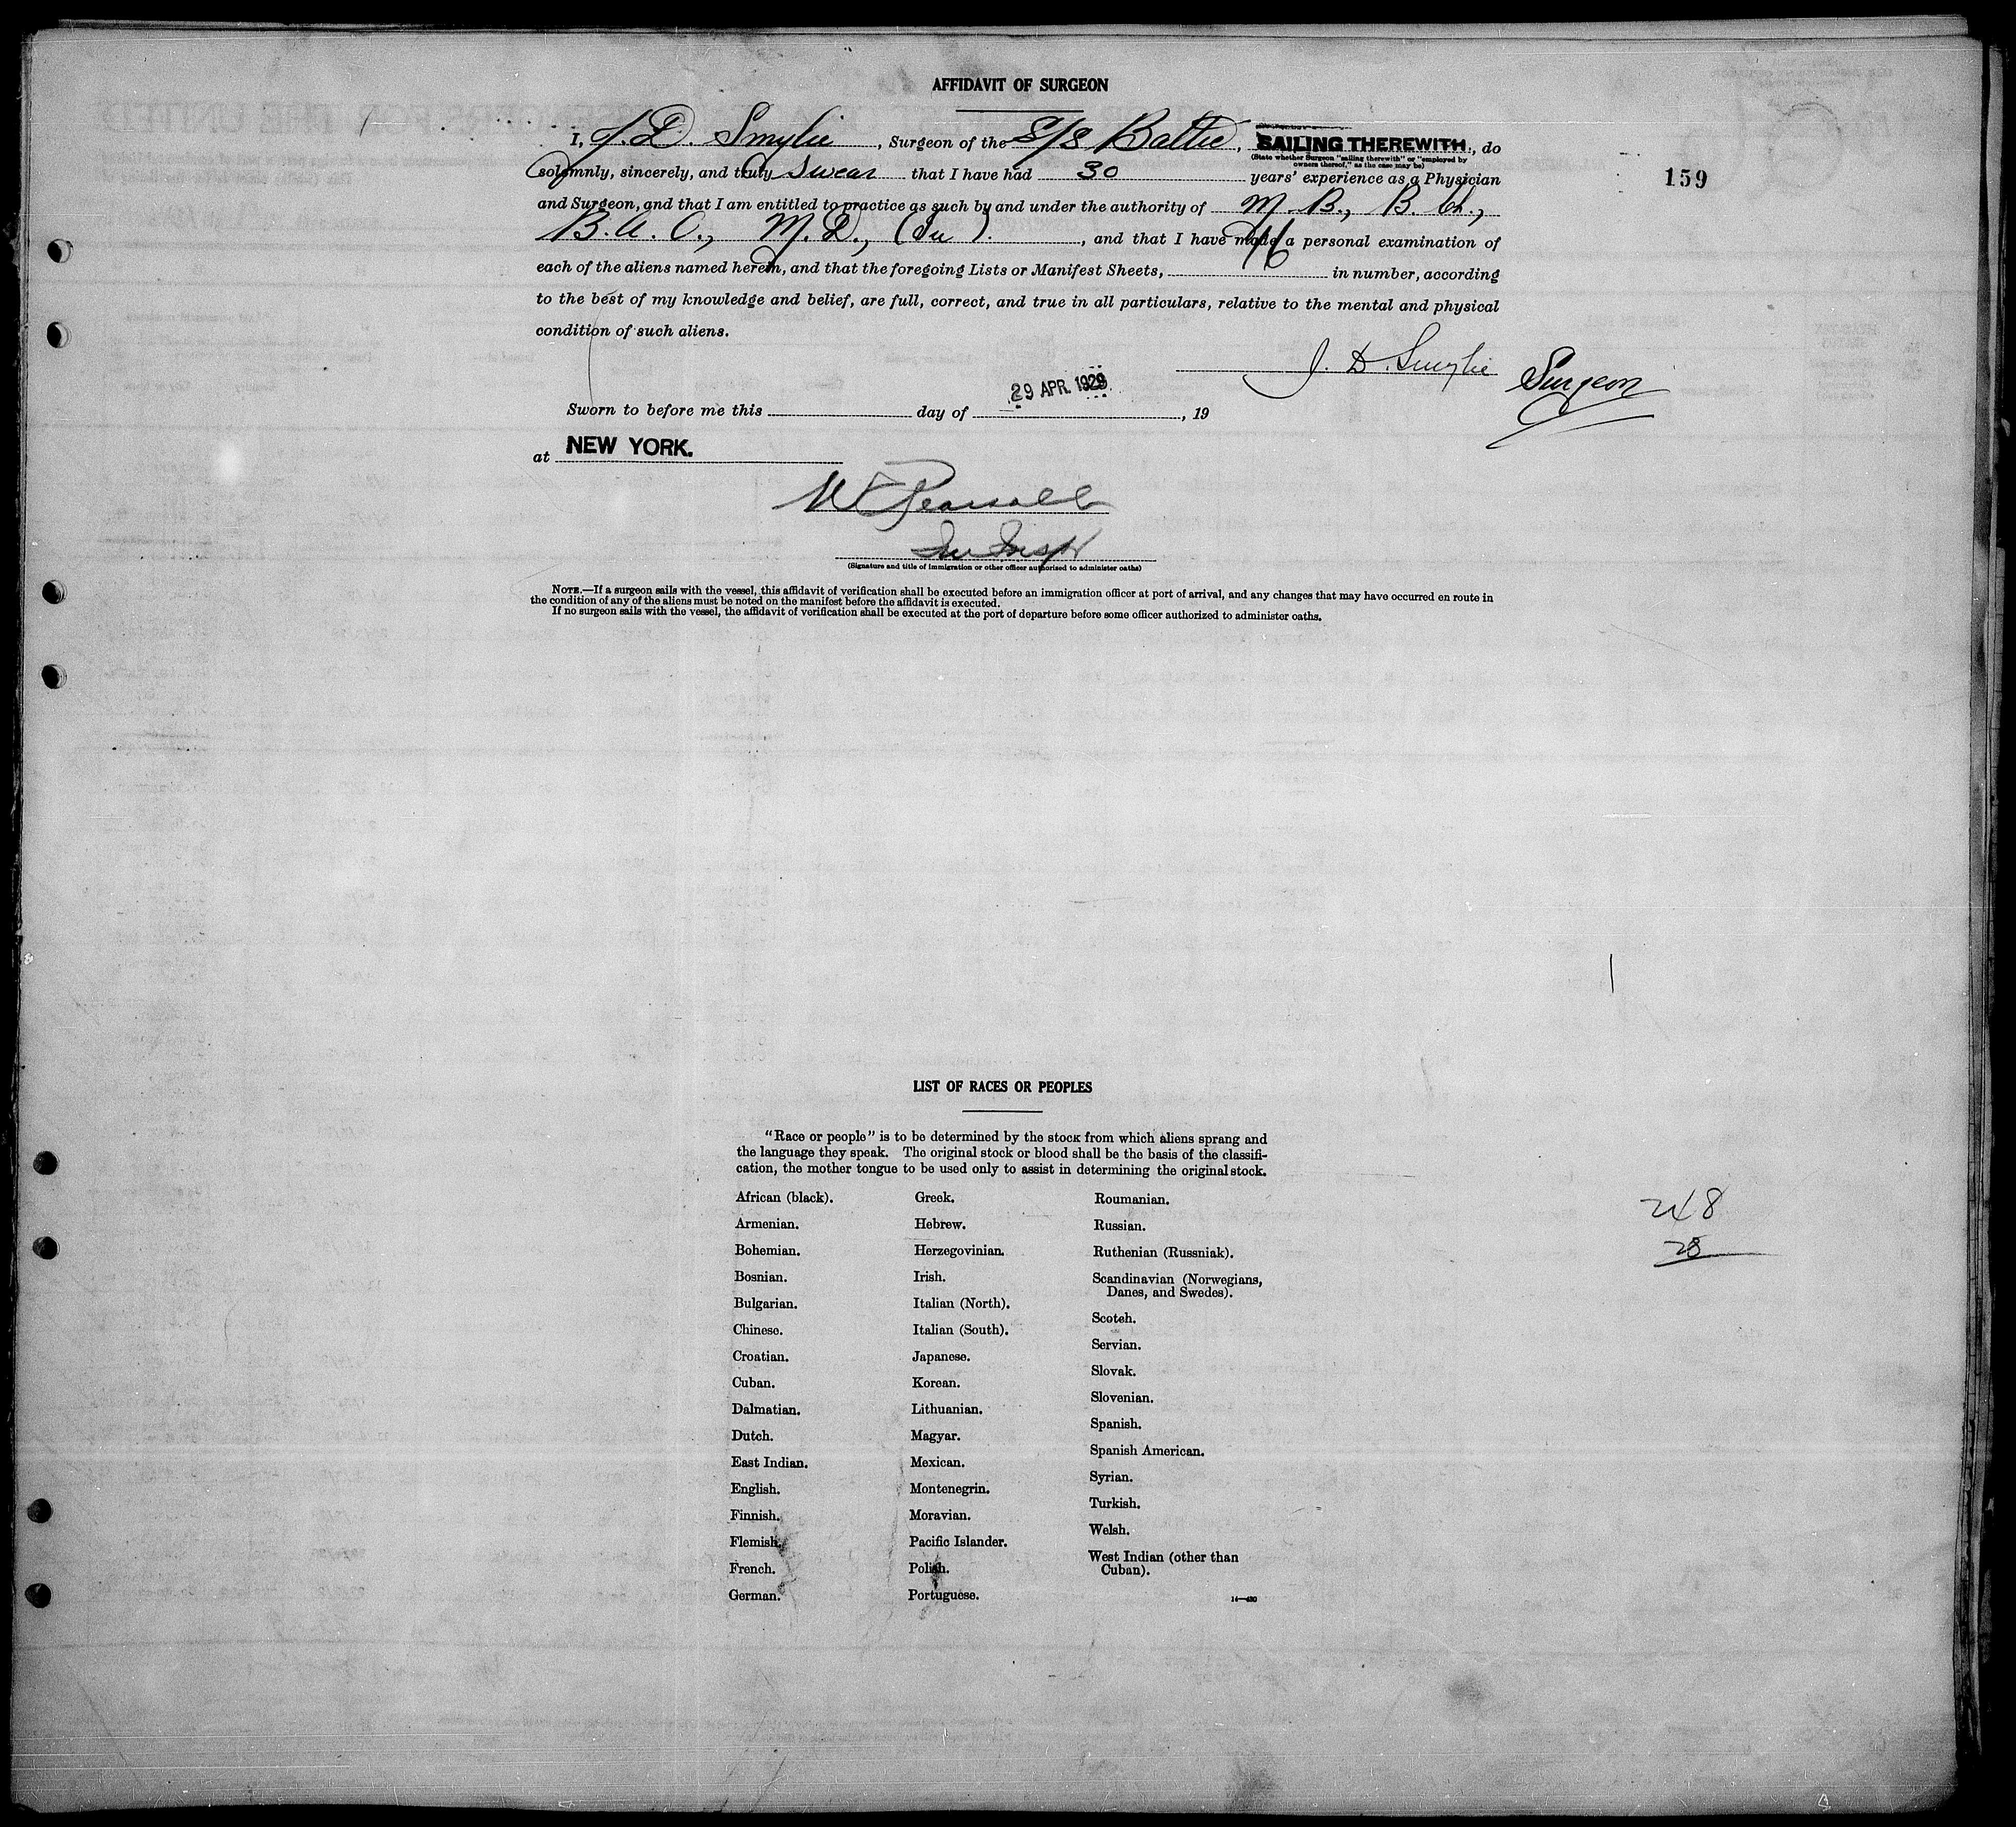 AFFIDAVIT OF SURGEON
I, J. D. Smylie, Surgeon of the S/S Baltic, SAILING THEREWITH, do
(State whether Surgeon "sailing therewith" or "employed by
owners thereof," as the case may be)
159
solemnly, sincerely, and truly swear that I have had 30 years' experience as a Physician
and Surgeon, and that I am entitled to practice as such by and under the authority of M.B., B.Ch.,
B.A.O., M.D., , and that I have made a personal examination of
each of the aliens named herein, and that the foregoing Lists or Manifest Sheets, in number, according
to the best of my knowledge and belief, are full, correct, and true in all particulars, relative to the mental and physical
condition of such aliens.
J. D. Smylie Surgeon
29 APR. 1929
Sworn to before me this day of , 19
at NEW YORK.
W Pearsall
Im Inspr
(Signature and title of immigration or other officer authorized to administer oaths)
NOTE.—If a surgeon sails with the vessel, this affidavit of verification shall be executed before an immigration officer at port of arrival, and any changes that may have occurred en route in
the condition of any of the aliens must be noted on the manifest before the affidavit is executed.
If no surgeon sails with the vessel, the affidavit of verification shall be executed at the port of departure before some officer authorized to administer oaths.
LIST OF RACES OR PEOPLES
"Race or people" is to be determined by the stock from which aliens sprang and
the language they speak. The original stock or blood shall be the basis of the classifi-
cation, the mother tongue to be used only to assist in determining the original stock.
African (black).
Armenian.
Bohemian.
Bosnian.
Bulgarian.
Chinese.
Croatian.
Cuban.
Dalmatian.
Dutch.
East Indian.
English.
Finnish.
Flemish.
French.
German.
Greek.
Hebrew.
Herzegovinian.
Irish.
Italian (North).
Italian (South).
Japanese.
Korean.
Lithuanian.
Magyar.
Mexican.
Montenegrin.
Moravian.
Pacific Islander.
Polish.
Portuguese.
Roumanian.
Russian.
Ruthenian (Russniak).
Scandinavian (Norwegians,
Danes, and Swedes).
Scotch.
Servian.
Slovak.
Slovenian.
Spanish.
Spanish American.
Syrian.
Turkish.
Welsh.
West Indian (other than
Cuban).
14—430
248
28